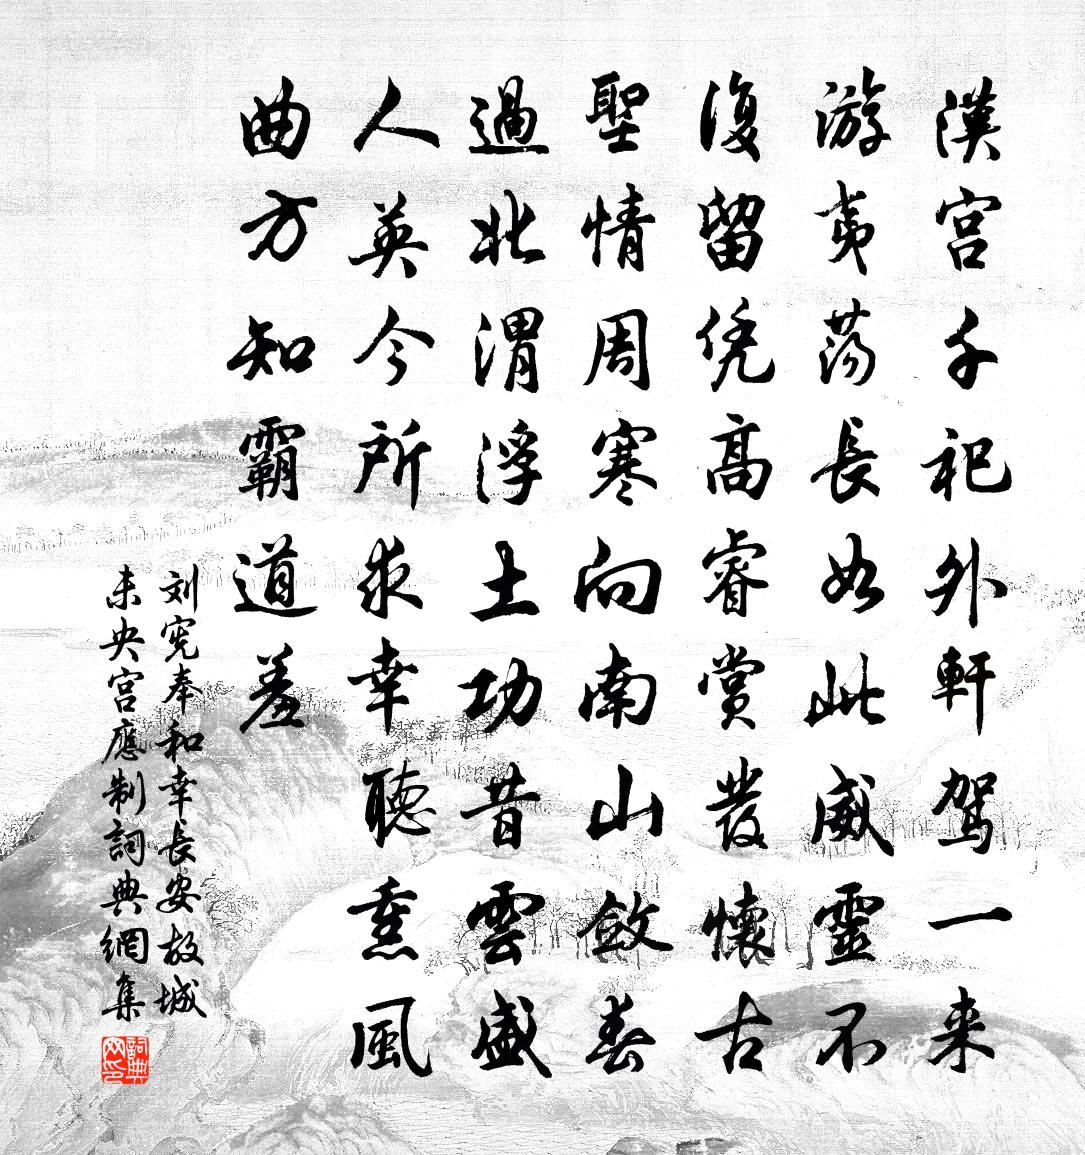 漢宫千祀外軒駕一来
游夷荡長如此威靈不
復留凭高睿賞發懷古
聖情周寒向南山斂春
過北渭浮土功昔雲盛
人英今所求幸聽熏風
曲方知霸道羞
刘宪奉和幸長安故城
未央宫應制詞典網集
詞典